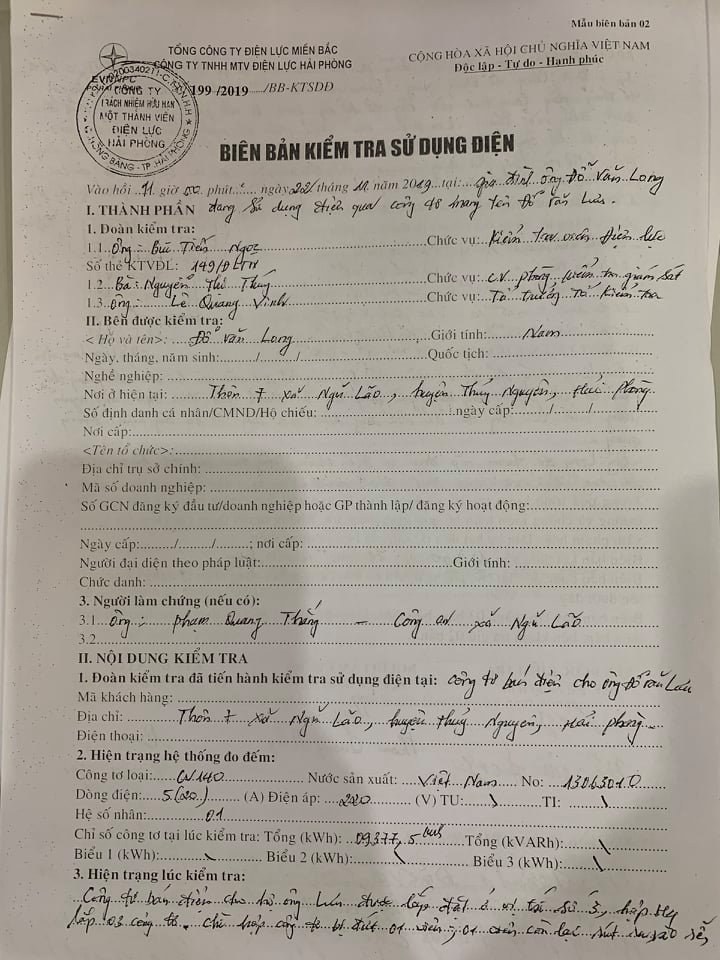 Mẫu biên bản 02
TỔNG CÔNG TY ĐIỆN LỰC MIỀN BẮC
CÔNG TY TNHH MTV ĐIỆN LỰC HẢI PHÒNG
CỘNG HÒA XÃ HỘI CHỦ NGHĨA VIỆT NAM
Độc lập - Tự do - Hạnh phúc
199 /2019 /BB-KTSDĐ
CÔNG TY
TRÁCH NHIỆM HỮU HẠN
MỘT THÀNH VIÊN
ĐIỆN LỰC
HẢI PHÒNG
BIÊN BẢN KIỂM TRA SỬ DỤNG ĐIỆN
Vào hồi 11 giờ 00 phút, ngày 22 tháng 11 năm 2019 tại: gia đình ông Đỗ Văn Long
I. THÀNH PHẦN đang sử dụng điện qua công tơ mang tên Đỗ Văn Lưu.
1. Đoàn kiểm tra:
1.1. Ông: Bùi Tiến Ngọc Chức vụ: Kiểm tra viên Điện lực
Số thẻ KTVĐL: 149/ĐLTN
1.2. Bà: Nguyễn Thị Thúy Chức vụ: CV phòng kiểm tra giám sát
1.3. Ông: Lê Quang Vinh Chức vụ: Tổ trưởng Tổ kiểm tra
II. Bên được kiểm tra:
< Họ và tên>: Đỗ Văn Long Giới tính: Nam
Ngày, tháng, năm sinh:......../......../........ Quốc tịch:
Nghề nghiệp:
Nơi ở hiện tại: Thôn 7 xã Ngũ Lão, huyện Thủy Nguyên, Hải Phòng
Số định danh cá nhân/CMND/Hộ chiếu: ngày cấp:....../....../......
Nơi cấp:
<Tên tổ chức>:
Địa chỉ trụ sở chính:
Mã số doanh nghiệp:
Số GCN đăng ký đầu tư/doanh nghiệp hoặc GP thành lập/ đăng ký hoạt động:
Ngày cấp:......../......../........; nơi cấp:
Người đại diện theo pháp luật: Giới tính:
Chức danh:
3. Người làm chứng (nếu có):
3.1. Ông: Phạm Quang Thắng - Công an xã Ngũ Lão
3.2.
II. NỘI DUNG KIỂM TRA
1. Đoàn kiểm tra đã tiến hành kiểm tra sử dụng điện tại: công tơ bán điện cho ông Đỗ Văn Lưu
Mã khách hàng:
Địa chỉ: Thôn 7 xã Ngũ Lão, huyện Thủy Nguyên, Hải Phòng
Điện thoại:
2. Hiện trạng hệ thống đo đếm:
Công tơ loại: CV140 Nước sản xuất: Việt Nam No: 13063010
Dòng điện: 5(20) (A) Điện áp: 220 (V) TU: \ TI: \
Hệ số nhân: 01
Chỉ số công tơ tại lúc kiểm tra: Tổng (kWh): 09377,5 kWh Tổng (kVARh): \
Biểu 1 (kWh): \ Biểu 2 (kWh): \ Biểu 3 (kWh): \
3. Hiện trạng lúc kiểm tra:
Công tơ bán điện cho hộ ông Lưu được lắp đặt ở vị trí số 3, hộp
lắp 03 công tơ. chì hộp công tơ bị đứt 01 viên, 01 viên còn lại